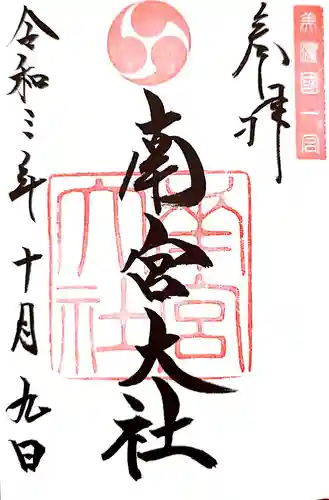 美濃國一宮
奉拝
南宮大社
南宮大社
令和三年十月九日